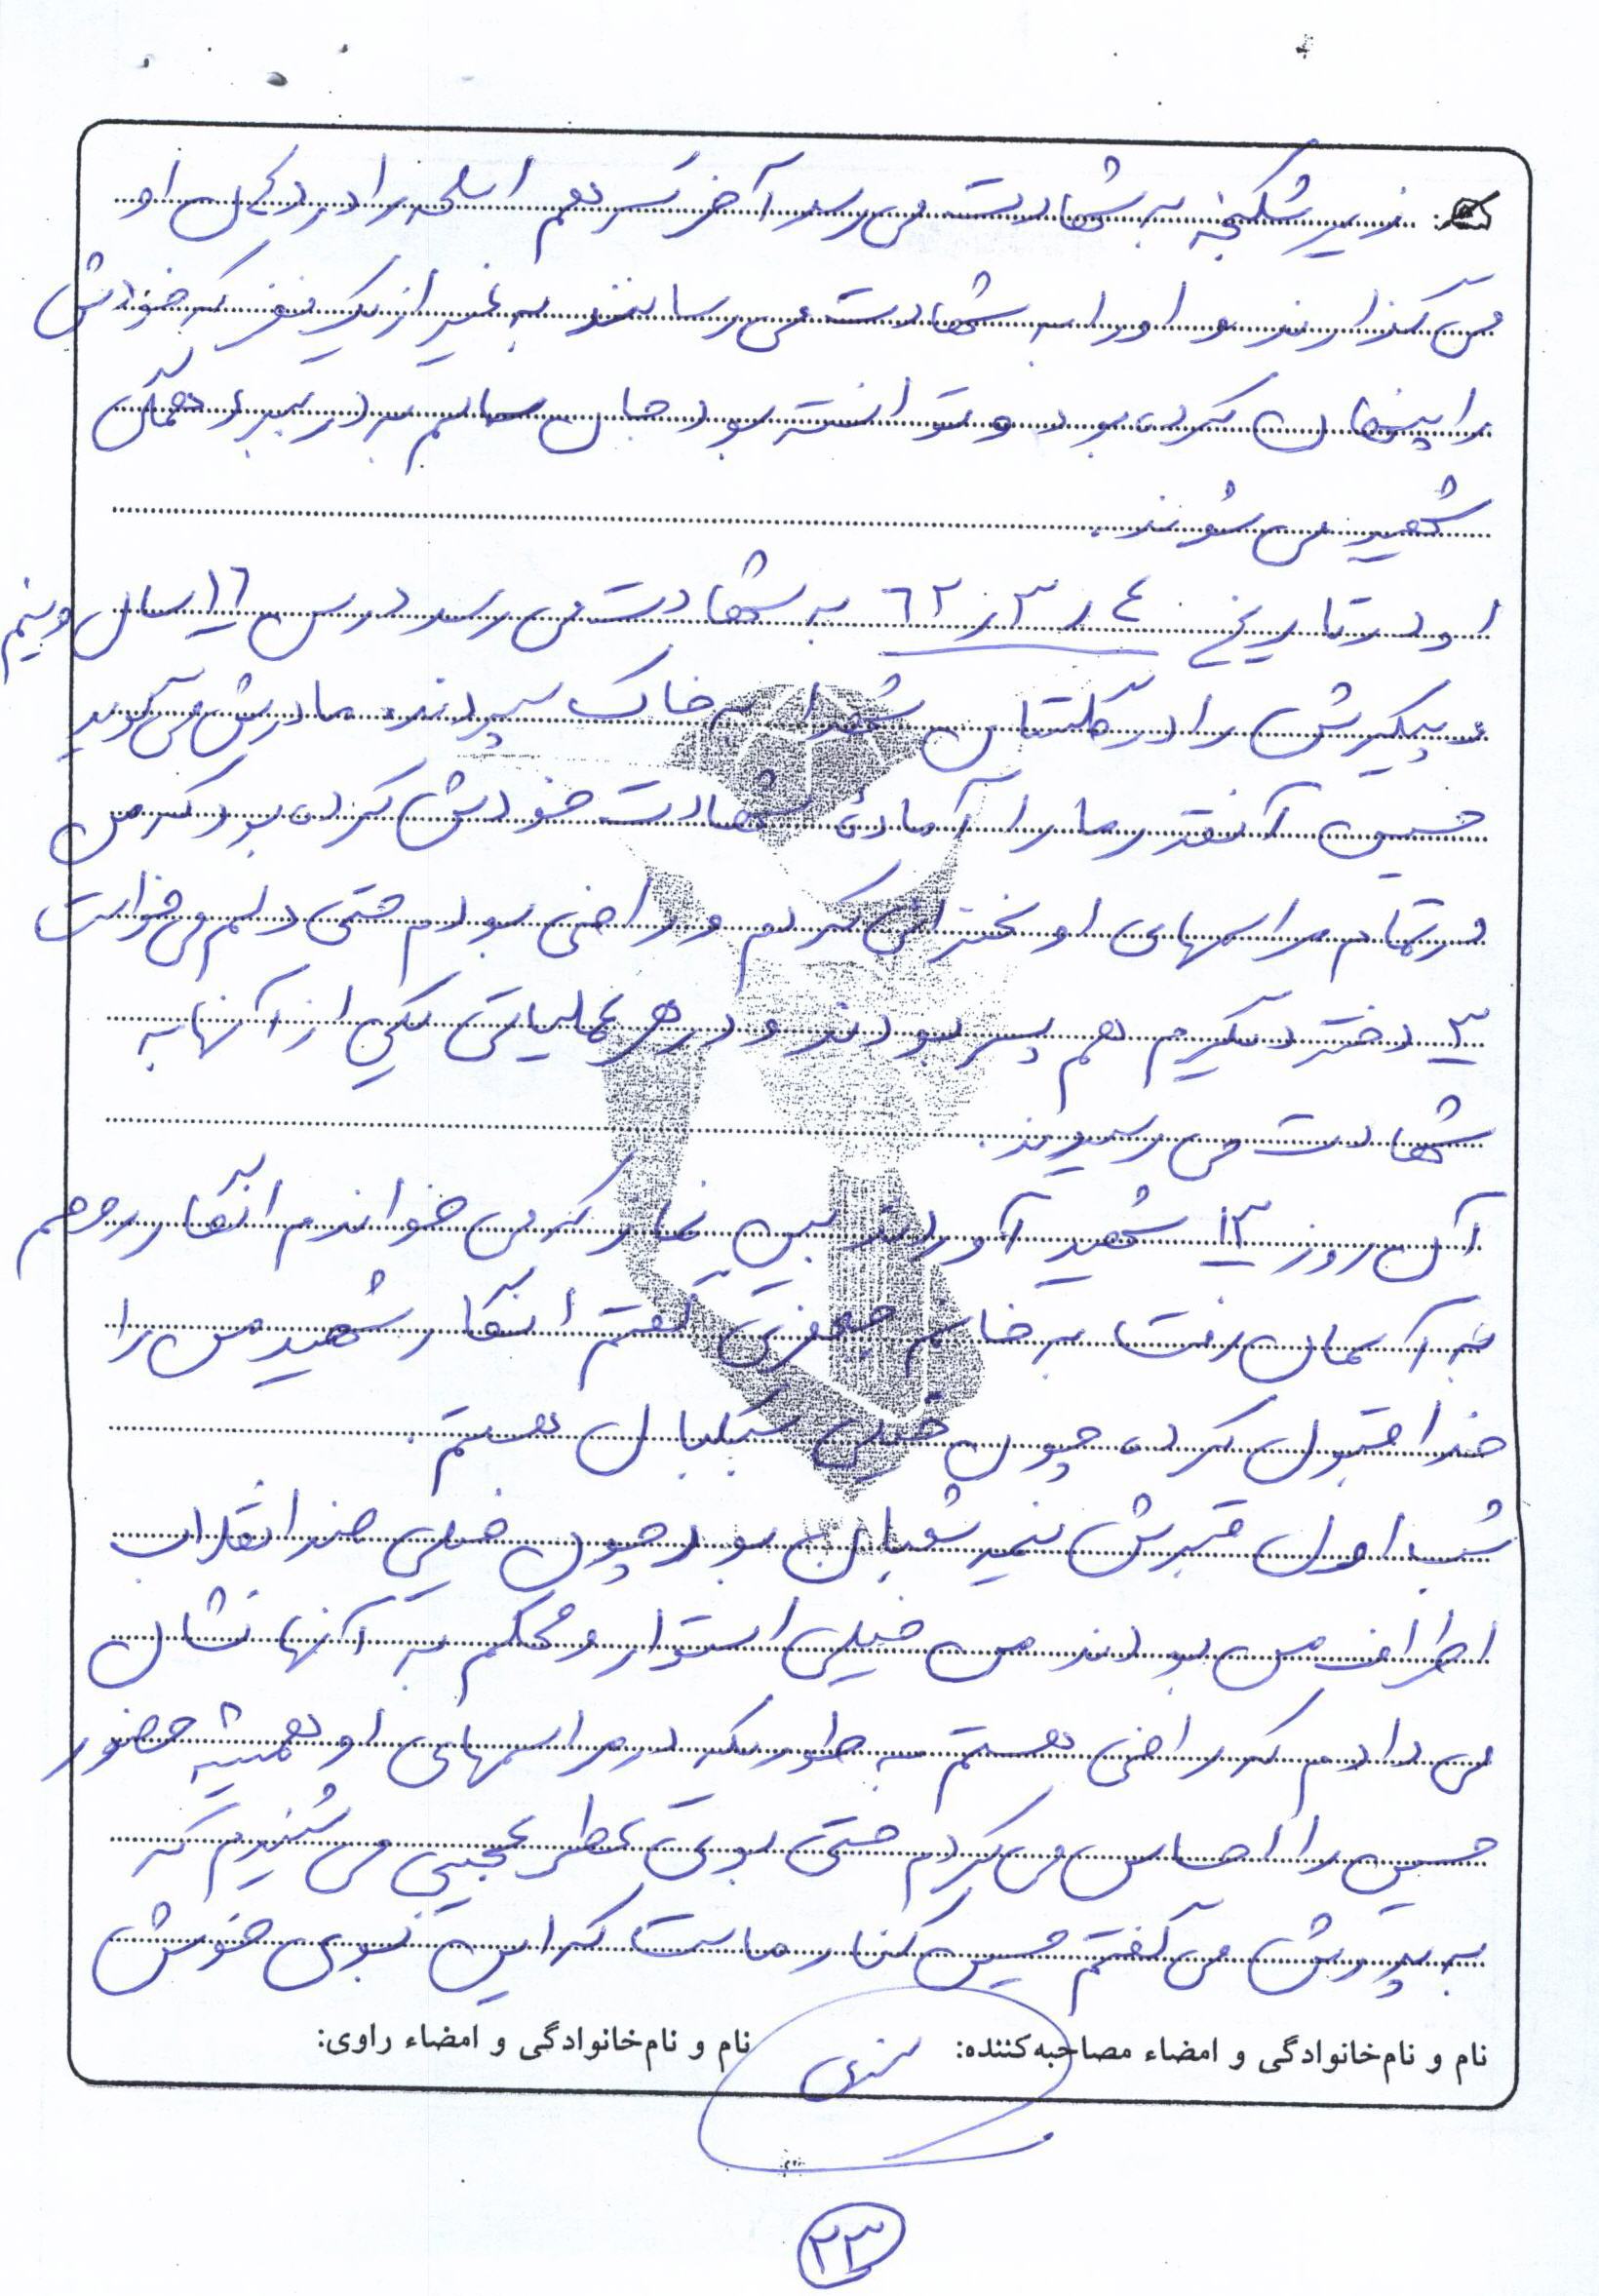 زیر شکنجه به شهادت می رسد آخر سر هم اسلحه را در دهان او
می گذارند و او را به شهادت می رسانند به غیر از یک نفر که خودش
را پنهان کرده بود و توانسته بود جان سالم به در ببرد همگی
شهید می شوند.
او در تاریخ ٦٢/٣/٤ به شهادت می رسد در سن ١٦ سال و نیم
و پیکرش را در گلستان شهدا به خاک سپردند. مادرش می گوید
حسین آنقدر ما را آمادهٔ شهادت خودش کرده بود که من
در تمام مراسمهای او سخنرانی کردم و راضی بودم حتی دلم می خواست
٣ دختر دیگرم هم پسر بودند و در هر عملیاتی یکی از آنها به
شهادت می رسیدند.
آن روز ١٣ شهید آوردند بین نماز که می خواندم انگار روحم
به آسمان رفت به خانم جعفری گفتم انگار شهید من را
خدا قبول کرده چون خیلی سبکبال هستم.
شب اول قبرش نیمه شعبان بود چون خیلی ضد انقلاب
اطراف من بودند من خیلی استوار و محکم به آنها نشان
می دادم که راضی هستم به طوریکه در مراسمهای او همیشه حضور
حسین را احساس می کردم حتی بوی عطر عجیبی می شنیدم که
به پدرش می گفتم حسین کنار ماست که این بوی خوش
نام و نام‌خانوادگی و امضاء مصاحبه‌کننده: نام و نام‌خانوادگی و امضاء راوی:
٢٣